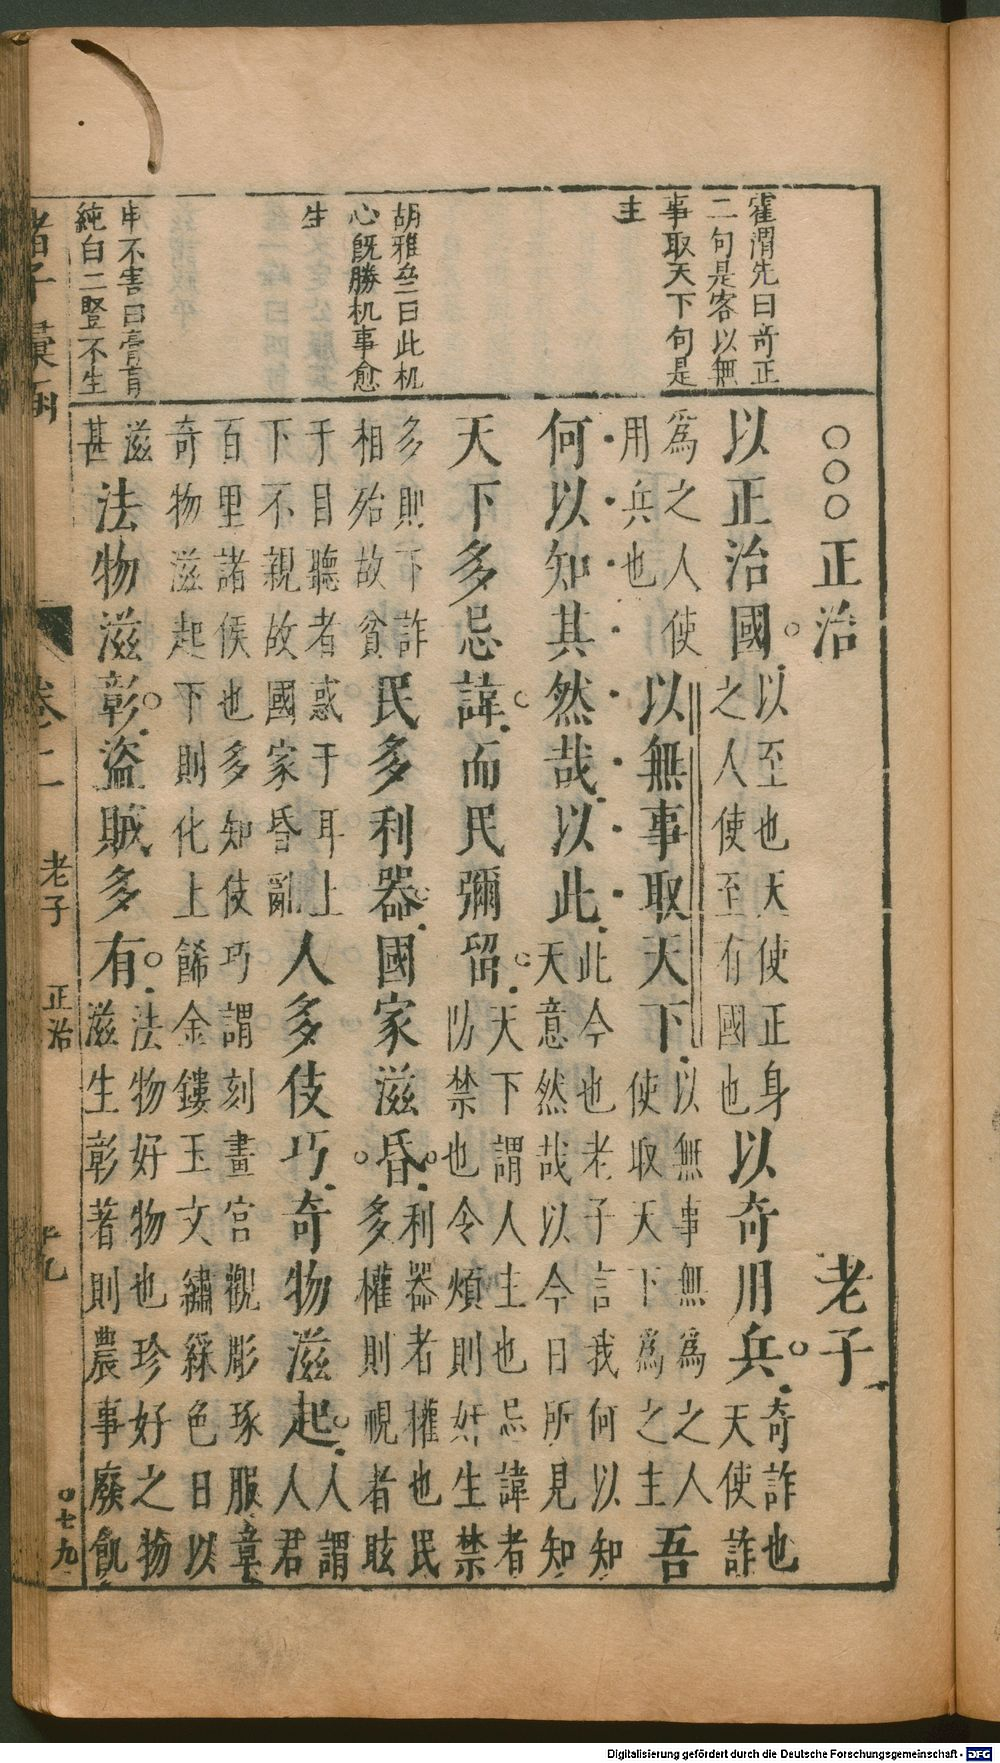 霍渭先曰奇正
二句是客以無
事取天下句是
主
胡雅垒曰此机
心旣勝机事愈
生
申不害曰膏肓
純白二豎不生
○○○正治 老子
以正治國。以至也天使正身之人使至有國也以奇用兵。奇詐也天使詐
為之人使用兵也以無事取天下以無事無為之人使取天下為之主吾
何以知其然哉以此此今也老子言我何以知天意然哉以今日所見知
天下多忌諱。而民彌留。天下謂人主也忌諱者防禁也令煩則奸生禁
多則下詐相殆故貧民多利器。國家滋昏。利器者權也民多權則視者眩
于目聽者惑于耳上下不親故國家昏亂人多伎巧。奇物滋起。人謂人君
百里諸侯也多知伎巧謂刻畫宮觀彫琢服章奇物滋起下則化上餙金鏤玉文繡綵色日以
滋甚法物滋彰。盜賊多有。法物好物也珍好之物滋生彰著則農事廢飢
諸子彙函 卷二 老子 正治 十九 〇七九
Digitalisierung gefördert durch die Deutsche Forschungsgemeinschaft - DFG